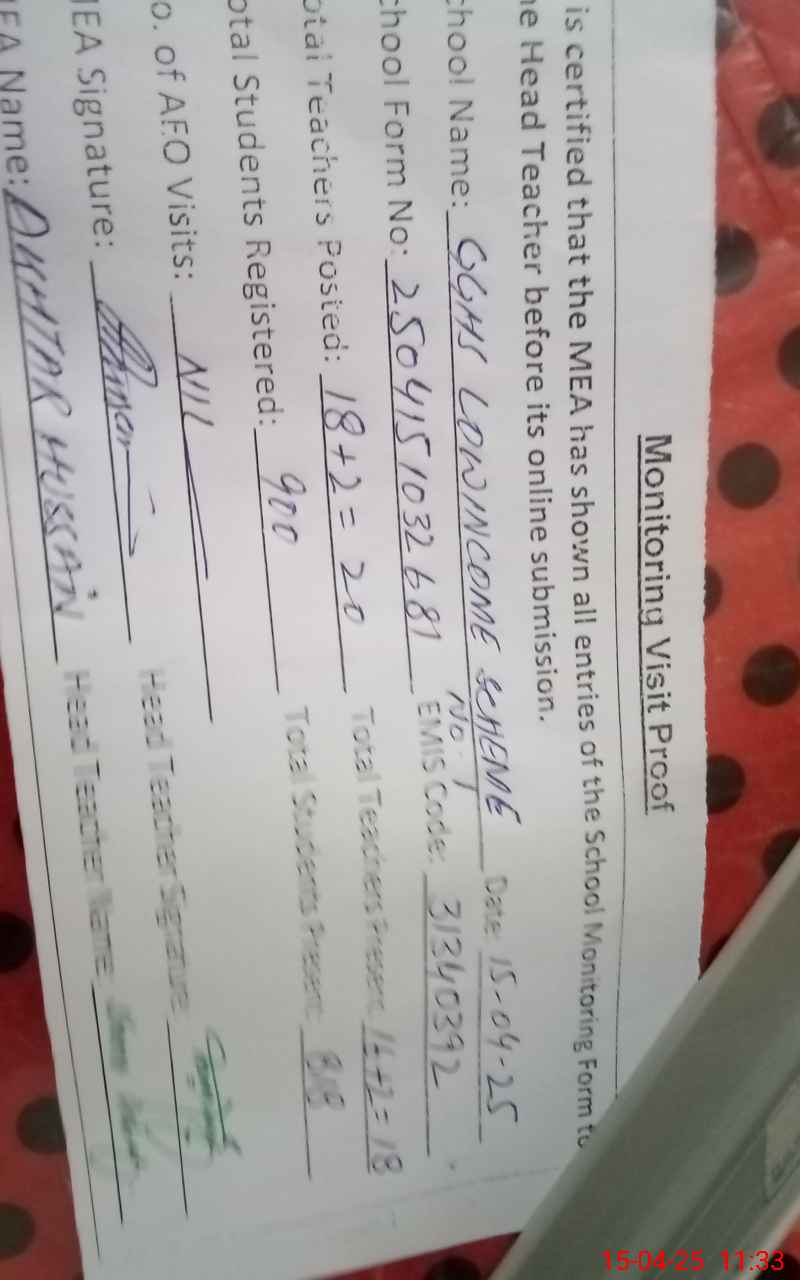 Monitoring Visit Proof
is certified that the MEA has shown all entries of the School Monitoring Form to
he Head Teacher before its online submission.
chool Name: GGHS LOW INCOME SCHEME NO. 1 Date: 15-04-25
chool Form No: 2504151032681 EMIS Code: 31340392
otal Teachers Posted: 18+2=20 Total Teachers Present: 16+2=18
otal Students Registered: 900 Total Students Present: 818
o. of AEO Visits: NIL
MEA Signature: Head Teacher Signature:
EA Name: AKHTAR HUSSAIN Head Teacher Name:
15-04-25 11:33